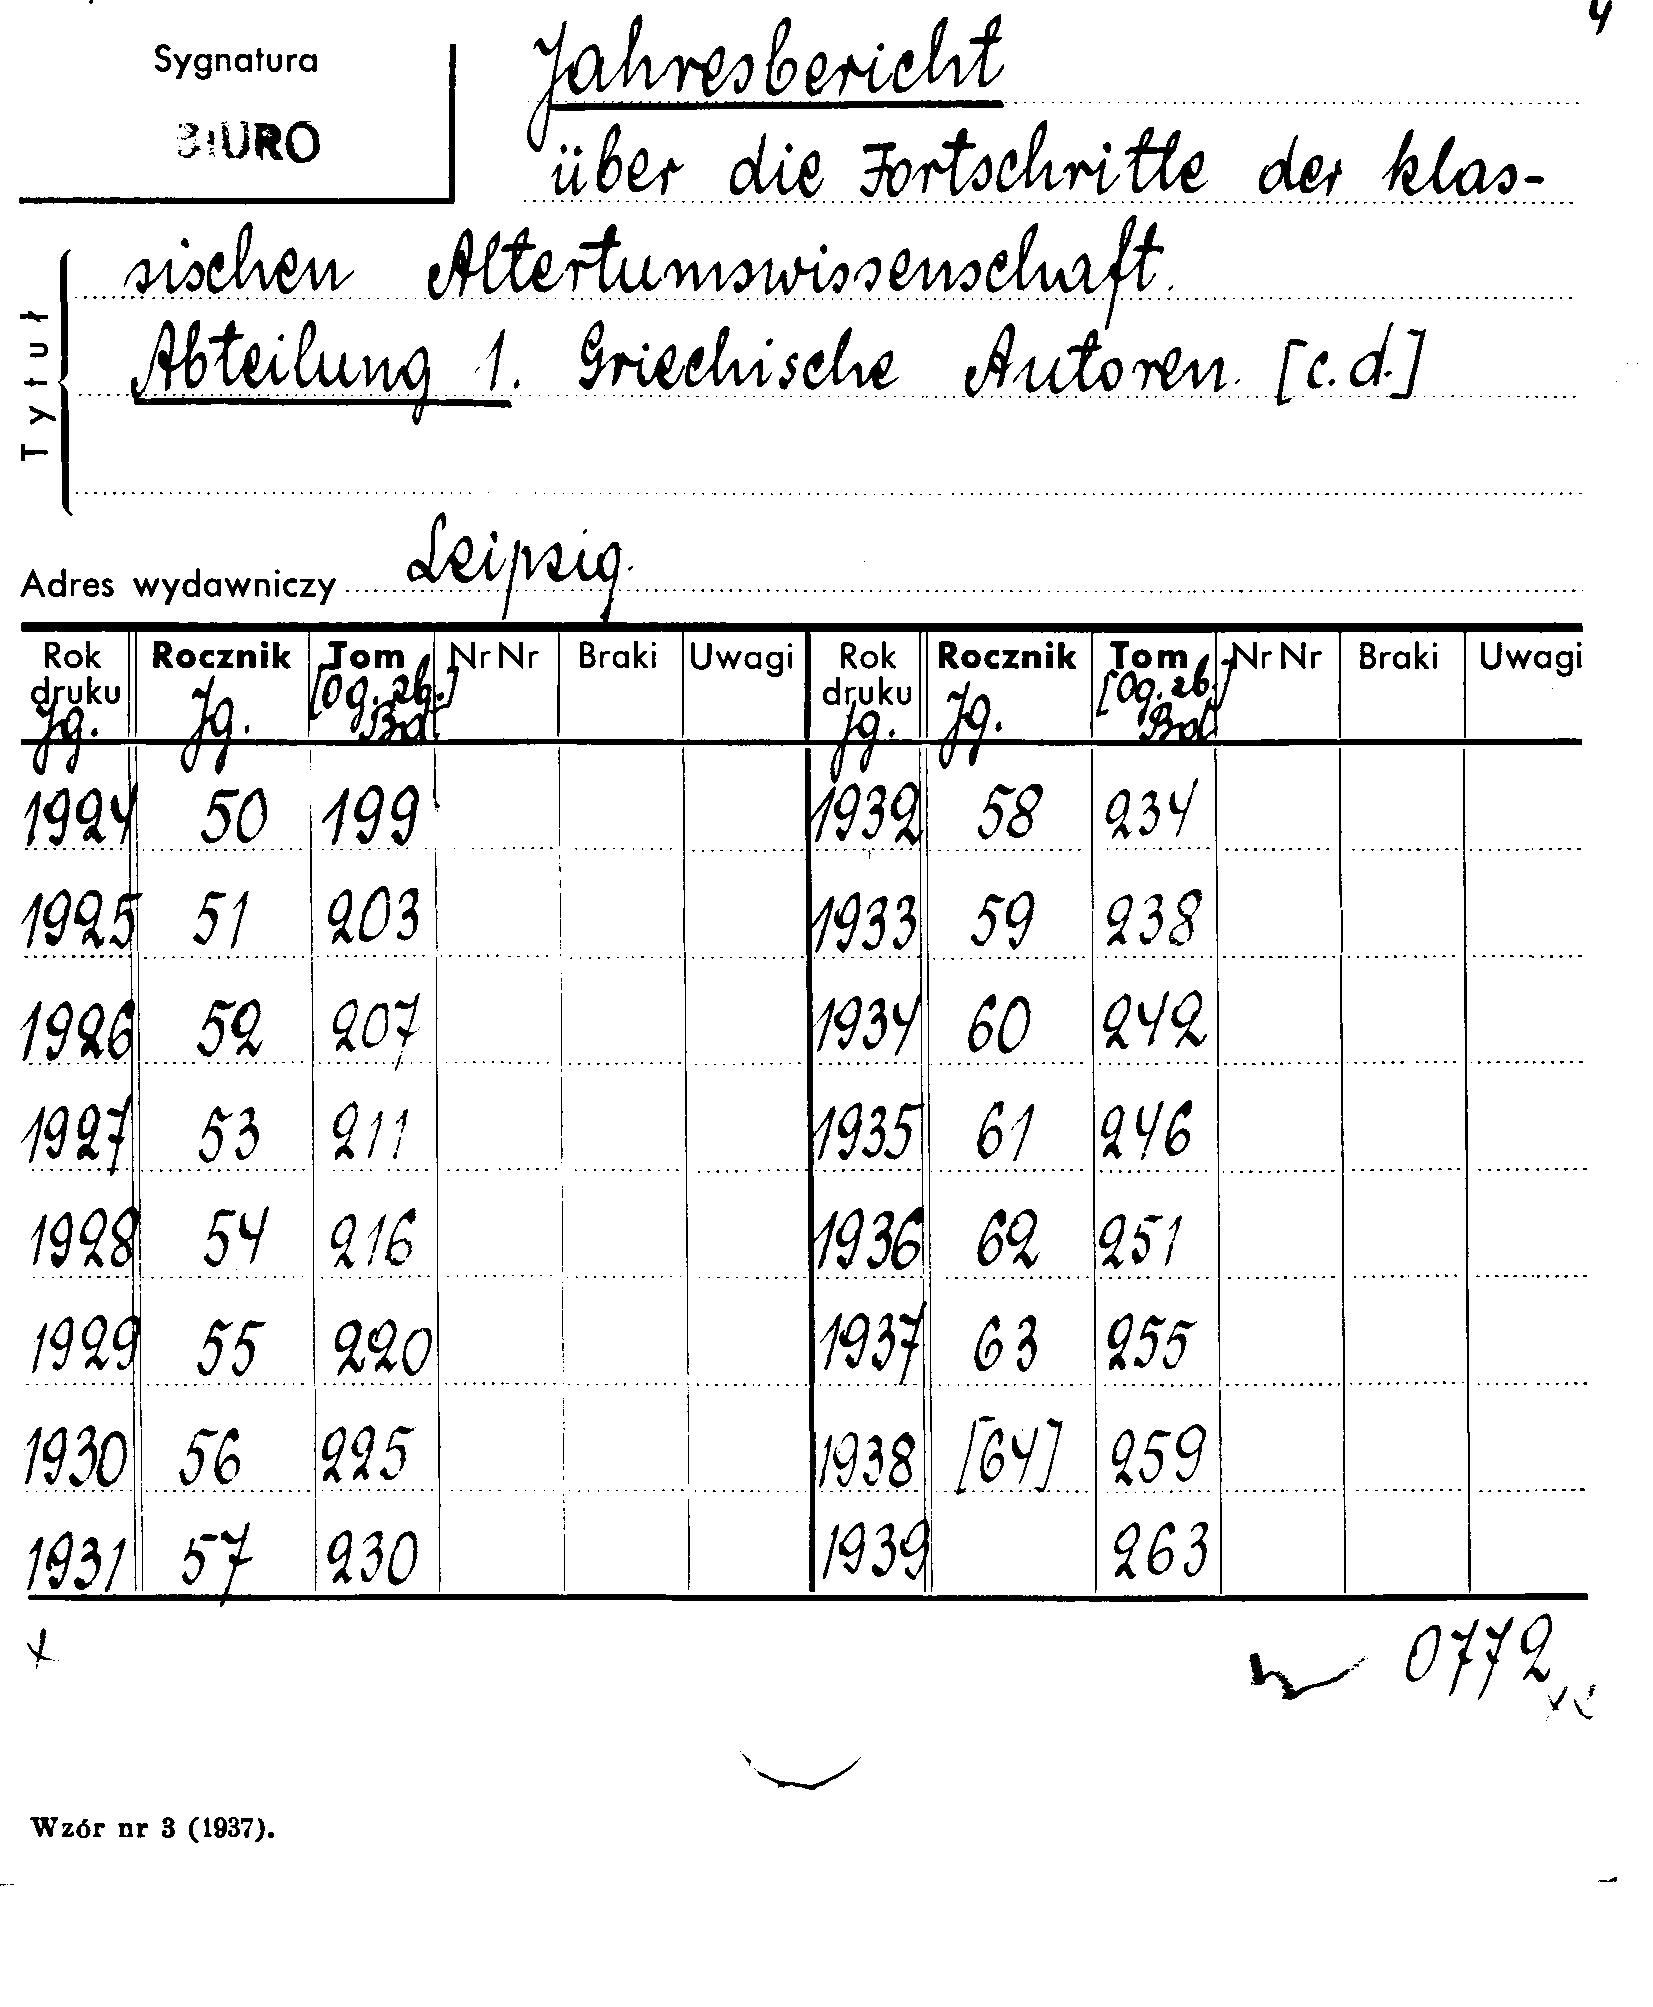 4
Sygnatura
BIURO
Jahresbericht
über die Fortschritte der klas-
sischen Altertumswissenschaft.
Abteilung 1. Griechische Autoren. [c.d.]
Tytuł
Adres wydawniczy Leipzig.
Rok druku Rocznik Tom Nr Nr Braki Uwagi Rok druku Rocznik Tom Nr Nr Braki Uwagi
Jg. Jg. [Og. zb.] Bd Jg. Jg. [Og. zb.] Bd
1924 50 199 1932 58 234
1925 51 203 1933 59 238
1926 52 207 1934 60 242
1927 53 211 1935 61 246
1928 54 216 1936 62 251
1929 55 220 1937 63 255
1930 56 225 1938 [64] 259
1931 57 230 1939 263
x
0772
Wzór nr 3 (1937).